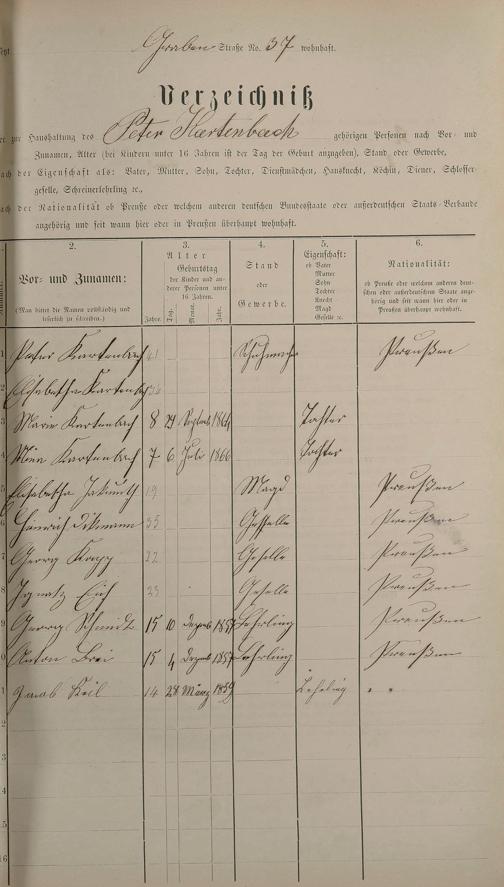 Graben Straße No. 37 wohnhaft.
Verzeichniß
zur Haushaltung des Peter Kartenbach gehörigen Personen nach Vor- und
Zunamen, Alter (bei Kindern unter 16 Jahren ist der Tag der Geburt anzugeben), Stand oder Gewerbe,
nach der Eigenschaft als: Vater, Mutter, Sohn, Tochter, Dienstmädchen, Hausknecht, Köchin, Diener, Schlosser-
geselle, Schreinerlehrling ꝛc.,
nach der Nationalität ob Preuße oder welchem anderen deutschen Bundesstaate oder außerdeutschen Staats-Verbande
angehörig und seit wann hier oder in Preußen überhaupt wohnhaft.
2. 3. 4. 5. 6.
Vor- und Zunamen:
(Man bittet die Namen vollständig und leserlich zu schreiben.)
Alter
Geburtstag
der Kinder und an-
derer Personen unter
16 Jahren.
Jahre. Tag. Monat. Jahr.
Stand
oder
Gewerbe.
Eigenschaft:
ob Vater
Mutter
Sohn
Tochter
Knecht
Magd
Geselle ꝛc.
Nationalität:
ob Preuße oder welchem anderen deut-
schen oder außerdeutschen Staate ange-
hörig und seit wann hier oder in
Preußen überhaupt wohnhaft.
1 Peter Kartenbach 41 Schuhmacher Preußen
2 Elisabetha Kartenbach
3 Marie Kartenbach 8 29 Septemb 1864 Tochter
4 Mina Kartenbach 7 6 Juli 1866 Tochter
5 Elisabetha 19 Magd Preußen
6 Heinrich Ditmann 35 Geselle Preußen
7 Georg Knapp 22 Geselle Preußen
8 Ignatz 23 Geselle Preußen
9 Georg Schmidt 15 10 Dezemb 1857 Lehrling Preußen
0 Anton Brei 15 4 Dezemb 1857 Lehrling Preußen
1 Jacob Keil 14 28 März 1859 Lehrling " "
2
3
4
5
16